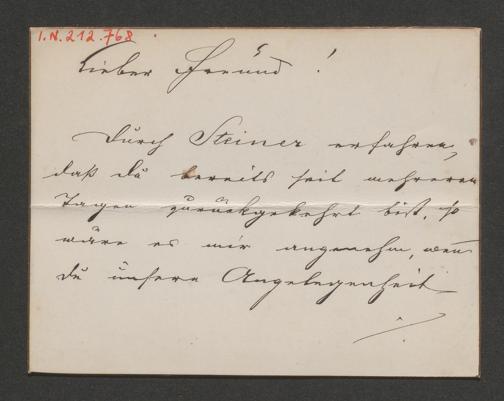 I.N. 212.768
Lieber Freund!
Durch Steiner erfahren,
daß du bereits seit mehreren
Tagen zurückgekehrt bist, so
wäre es mir angenehm, wenn
du unsere Angelegenheit
./.